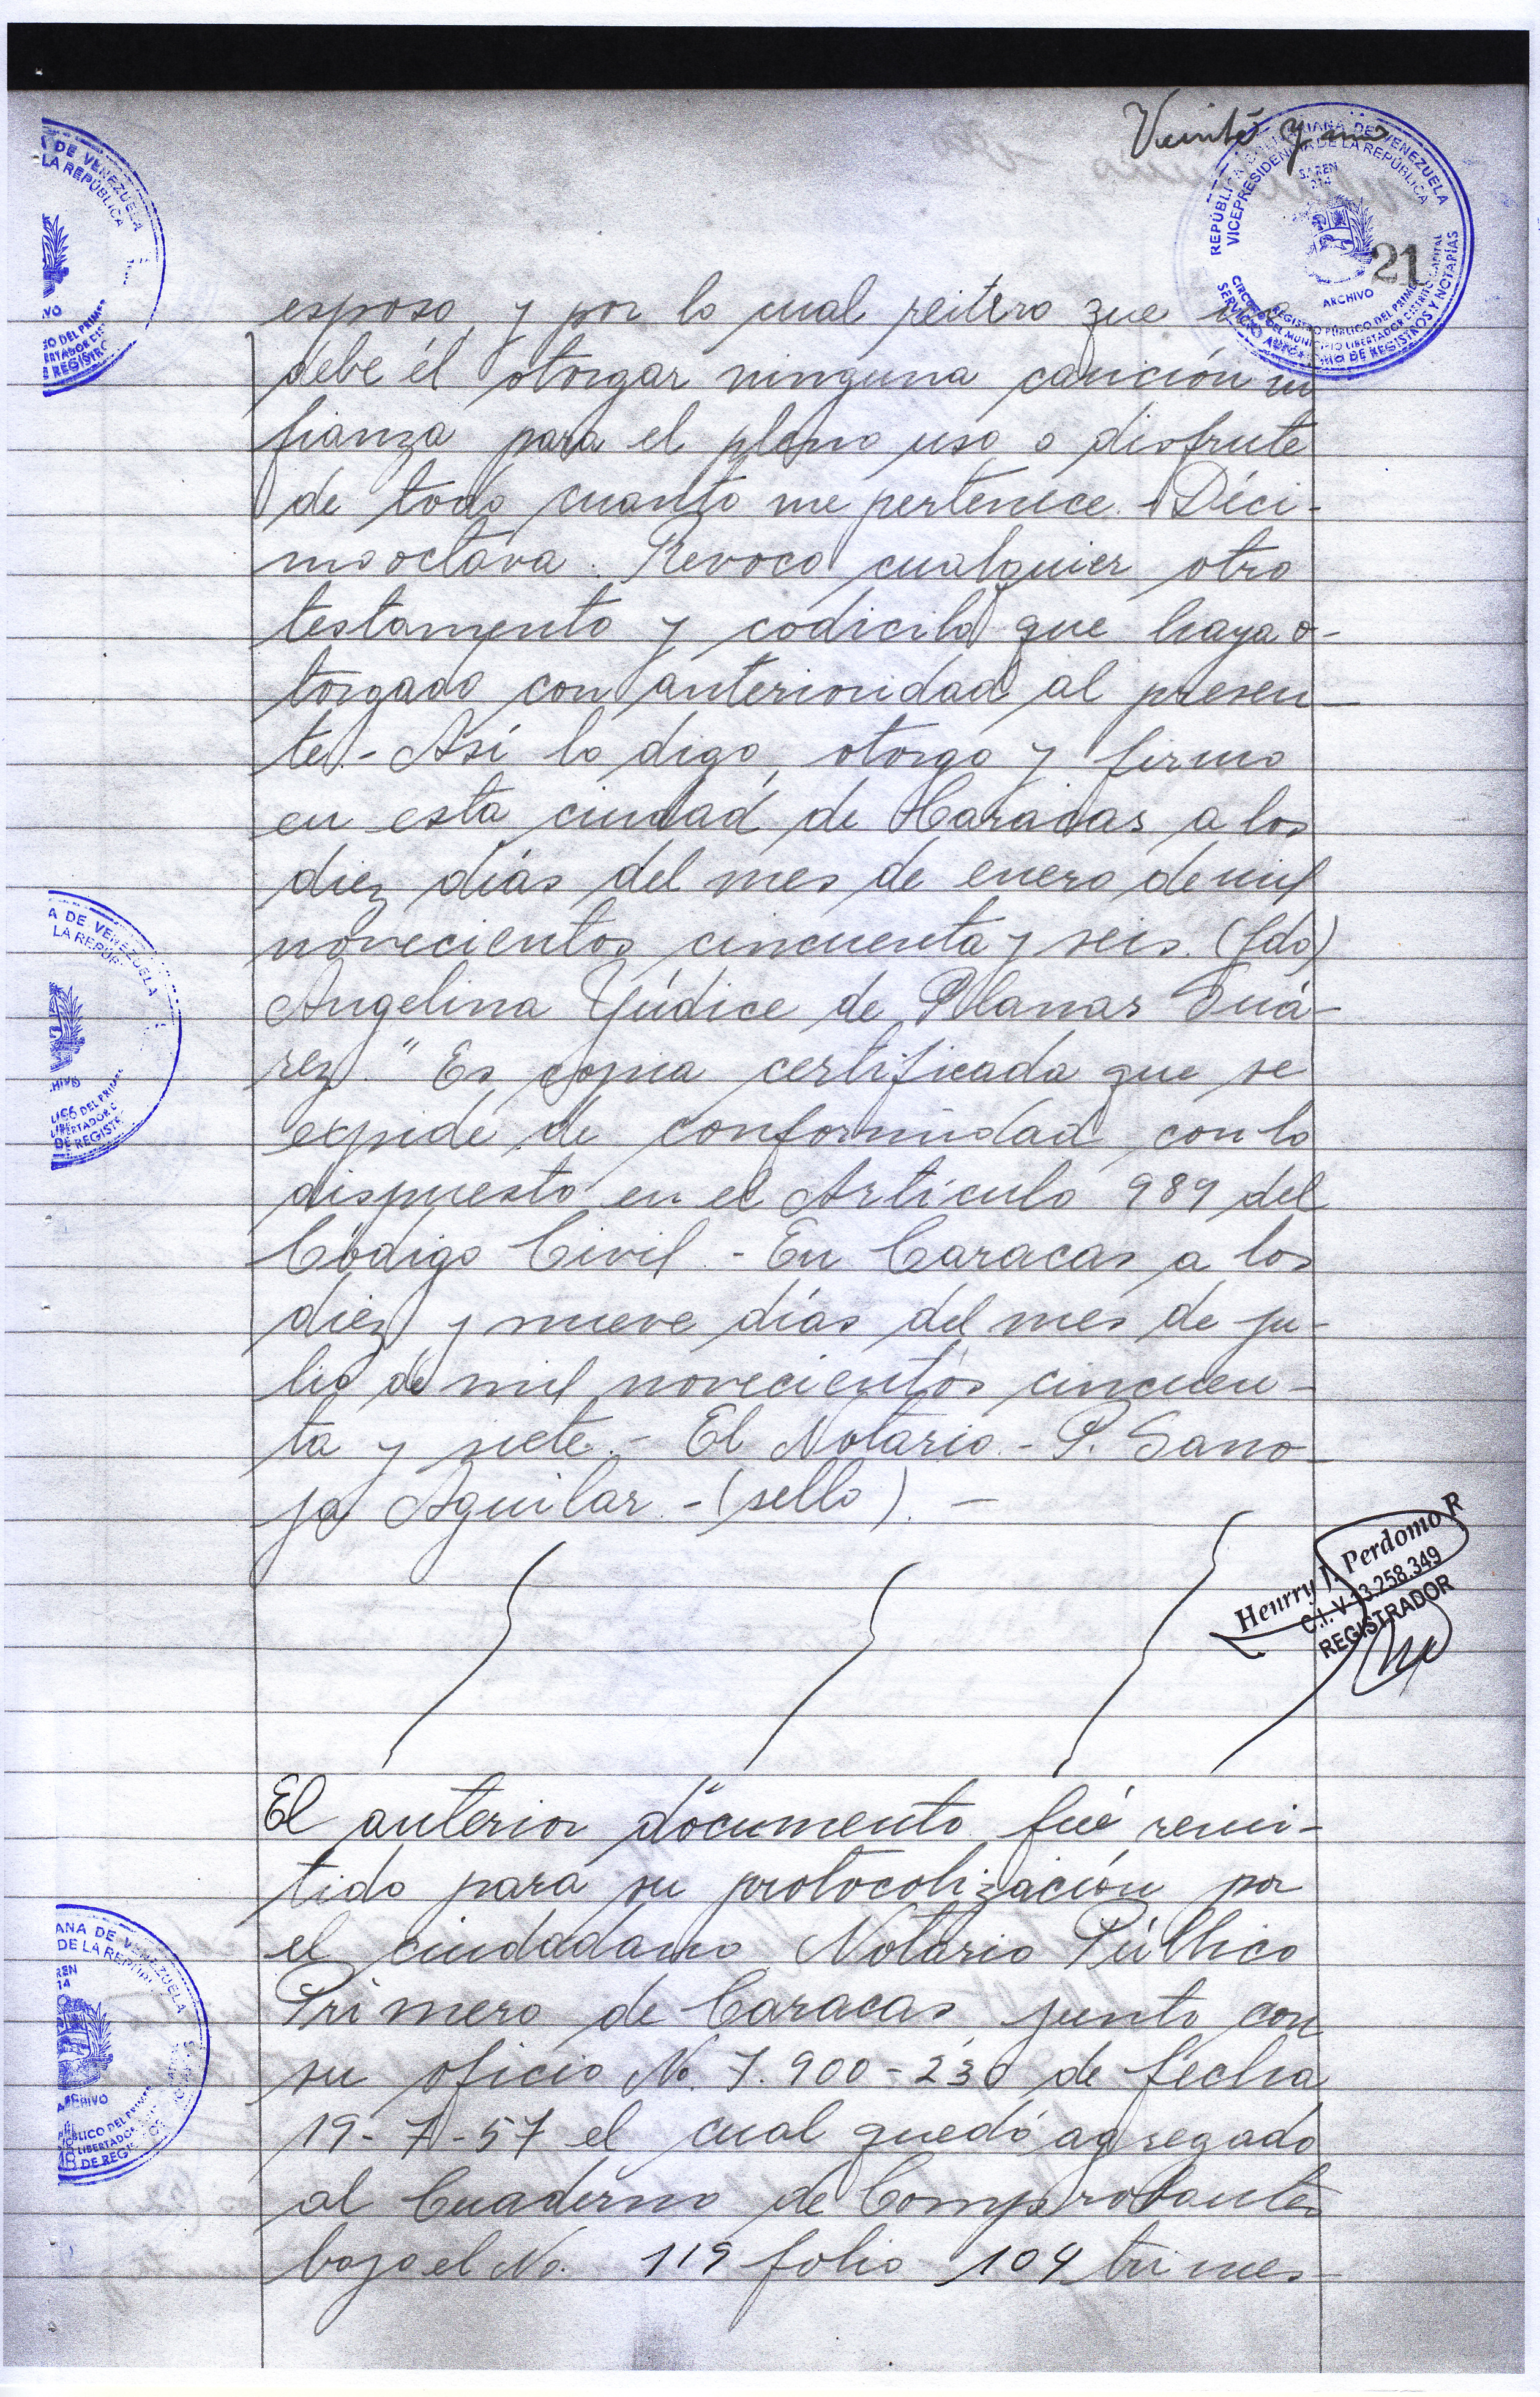 Veinte y uno
REPÚBLICA BOLIVARIANA DE VENEZUELA
VICEPRESIDENCIA DE LA REPÚBLICA
SAREN
214
21
ARCHIVO
REGISTRO PÚBLICO DEL PRIMER
CIRCUITO DEL MUNICIPIO LIBERTADOR DISTRITO CAPITAL
SERVICIO AUTÓNOMO DE REGISTROS Y NOTARIAS
esposo y por lo cual reitero que no
debe él otorgar ninguna caución ni
fianza para el pleno uso o disfrute
de todo cuanto me pertenece - Déci-
mooctava. Revoco cualquier otro
testamento y codicilo que haya o-
torgado con anterioridad al presen-
te.- Así lo digo, otorgo y firmo
en esta ciudad de Caracas a los
diez días del mes de enero de mil
novecientos cincuenta y seis. (fdo)
Angelina Yúdice de Planas Suá-
rez." Es copia certificada que se
expide de conformidad con lo
dispuesto en el Artículo 989 del
Código Civil. - En Caracas a los
diez y nueve días del mes de ju-
lio de mil novecientos cincuen-
ta y siete.- El Notario.- P. Sano-
ja Aguilar.-(sello). -
Henrry J. Perdomo R
C.I. V-13.258.349
REGISTRADOR
El anterior documento fué remi-
tido para su protocolización por
el ciudadano Notario Público
Primero de Caracas, junto con
su oficio No. 7.900-230 de fecha
19-7-57 el cual quedó agregado
al Cuaderno de Comprobantes
bajo el No. 119 folio 104 trimes-